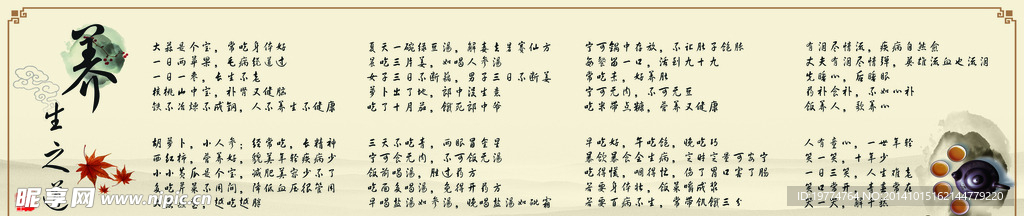 养生之道
大蒜是个宝，常吃身体好
一日两苹果，毛病绕道过
一日一枣，长生不老
核桃山中宝，补肾又健脑
铁不冶炼不成钢，人不养生不健康
夏天一碗绿豆汤，解毒去暑赛仙方
晨吃三片姜，如喝人参汤
女子三日不断藕，男子三日不断姜
萝卜出了地，郎中没生意
吃了十月茄，饿死郎中爷
宁可锅中存放，不让肚子饱胀
每餐留一口，活到九十九
常吃素，好养肚
宁可无肉，不可无豆
吃米带点糠，营养又健康
有泪尽情流，疾病自然愈
丈夫有泪尽情弹，英雄流血也流泪
先睡心，后睡眼
药补食补，不如心补
饭养人，歌养心
胡萝卜，小人参；经常吃，长精神
西红柿，营养好，貌美年轻疾病少
小小黄瓜是个宝，减肥美容少不了
多吃芹菜不用问，降低血压很管用
越吃越胖
三天不吃青，两眼冒金星
宁可食无肉，不可饭无汤
饭前喝汤，胜过药方
吃面多喝汤，免得开药方
早喝盐汤如参汤，晚喝盐汤如砒霜
早吃好，午吃饱，晚吃巧
暴饮暴食会生病，定时定量可安宁
吃得慢，咽得忙，伤了胃口害了肠
若要身体壮，饭菜嚼成浆
若要百病不生，常带饥饿三分
人有童心，一世年轻
笑一笑，十年少
一日三笑，人生难老
笑口常开，青春常在
天一笑，
昵享网 www.nipic.cn
ID:19774764 NO:20141015162144779220